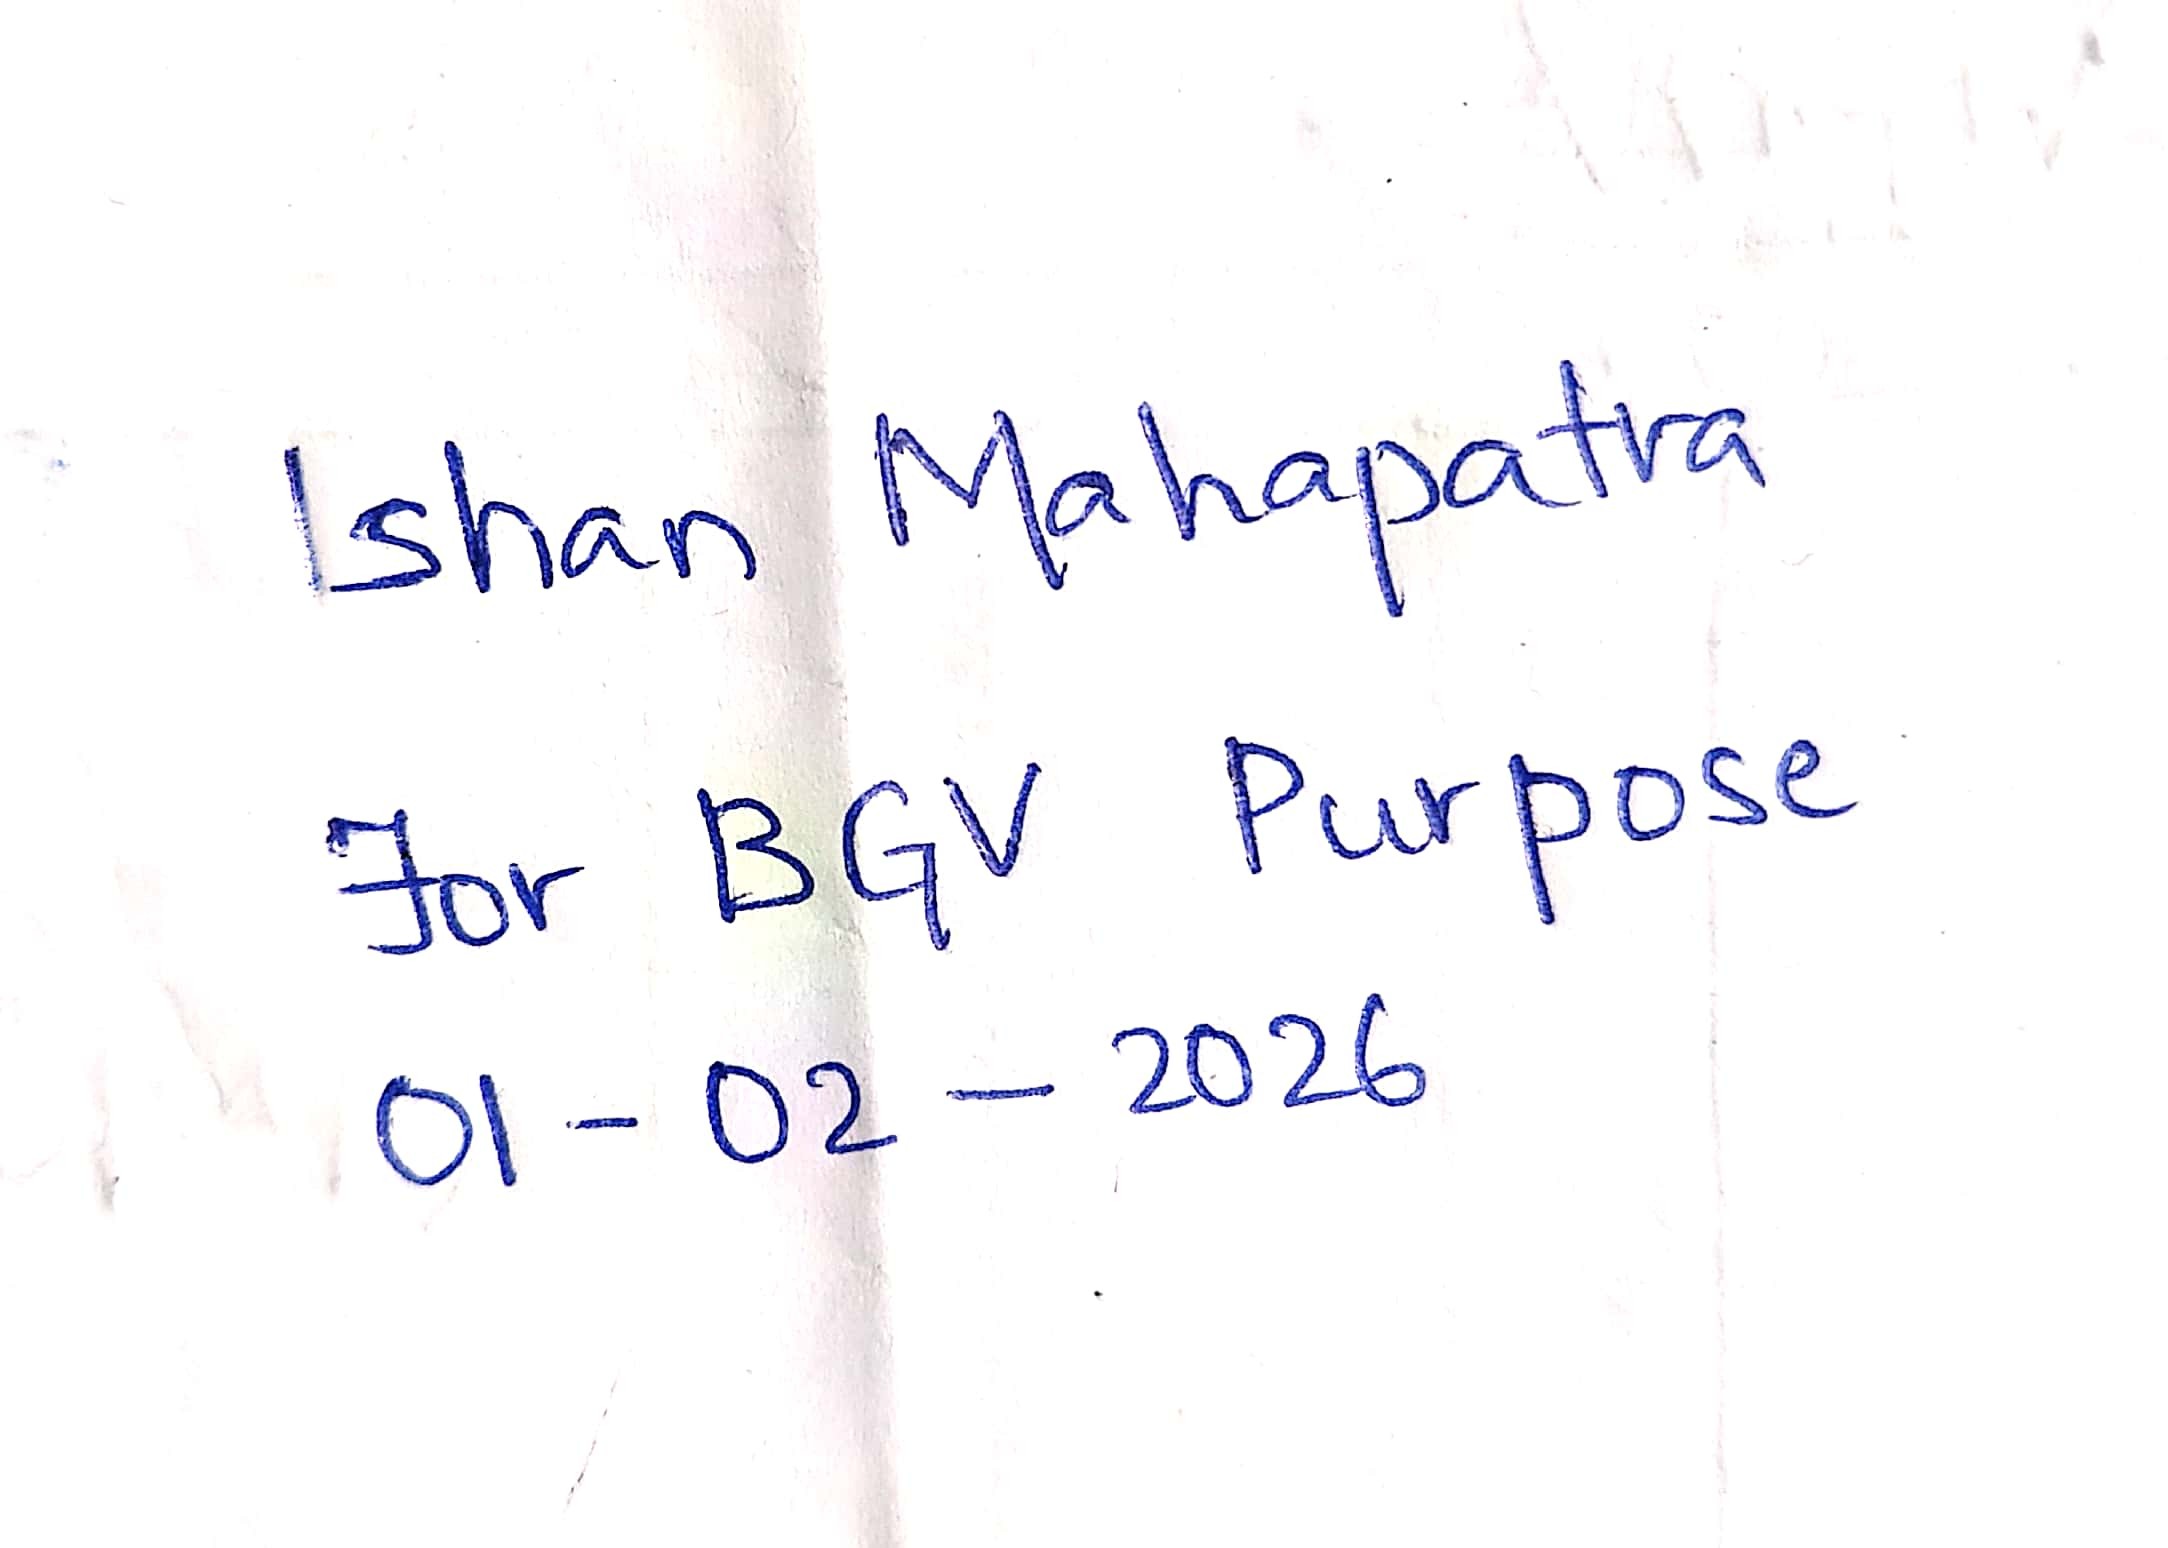 Ishan Mahapatra
For BGV Purpose
01-02-2026